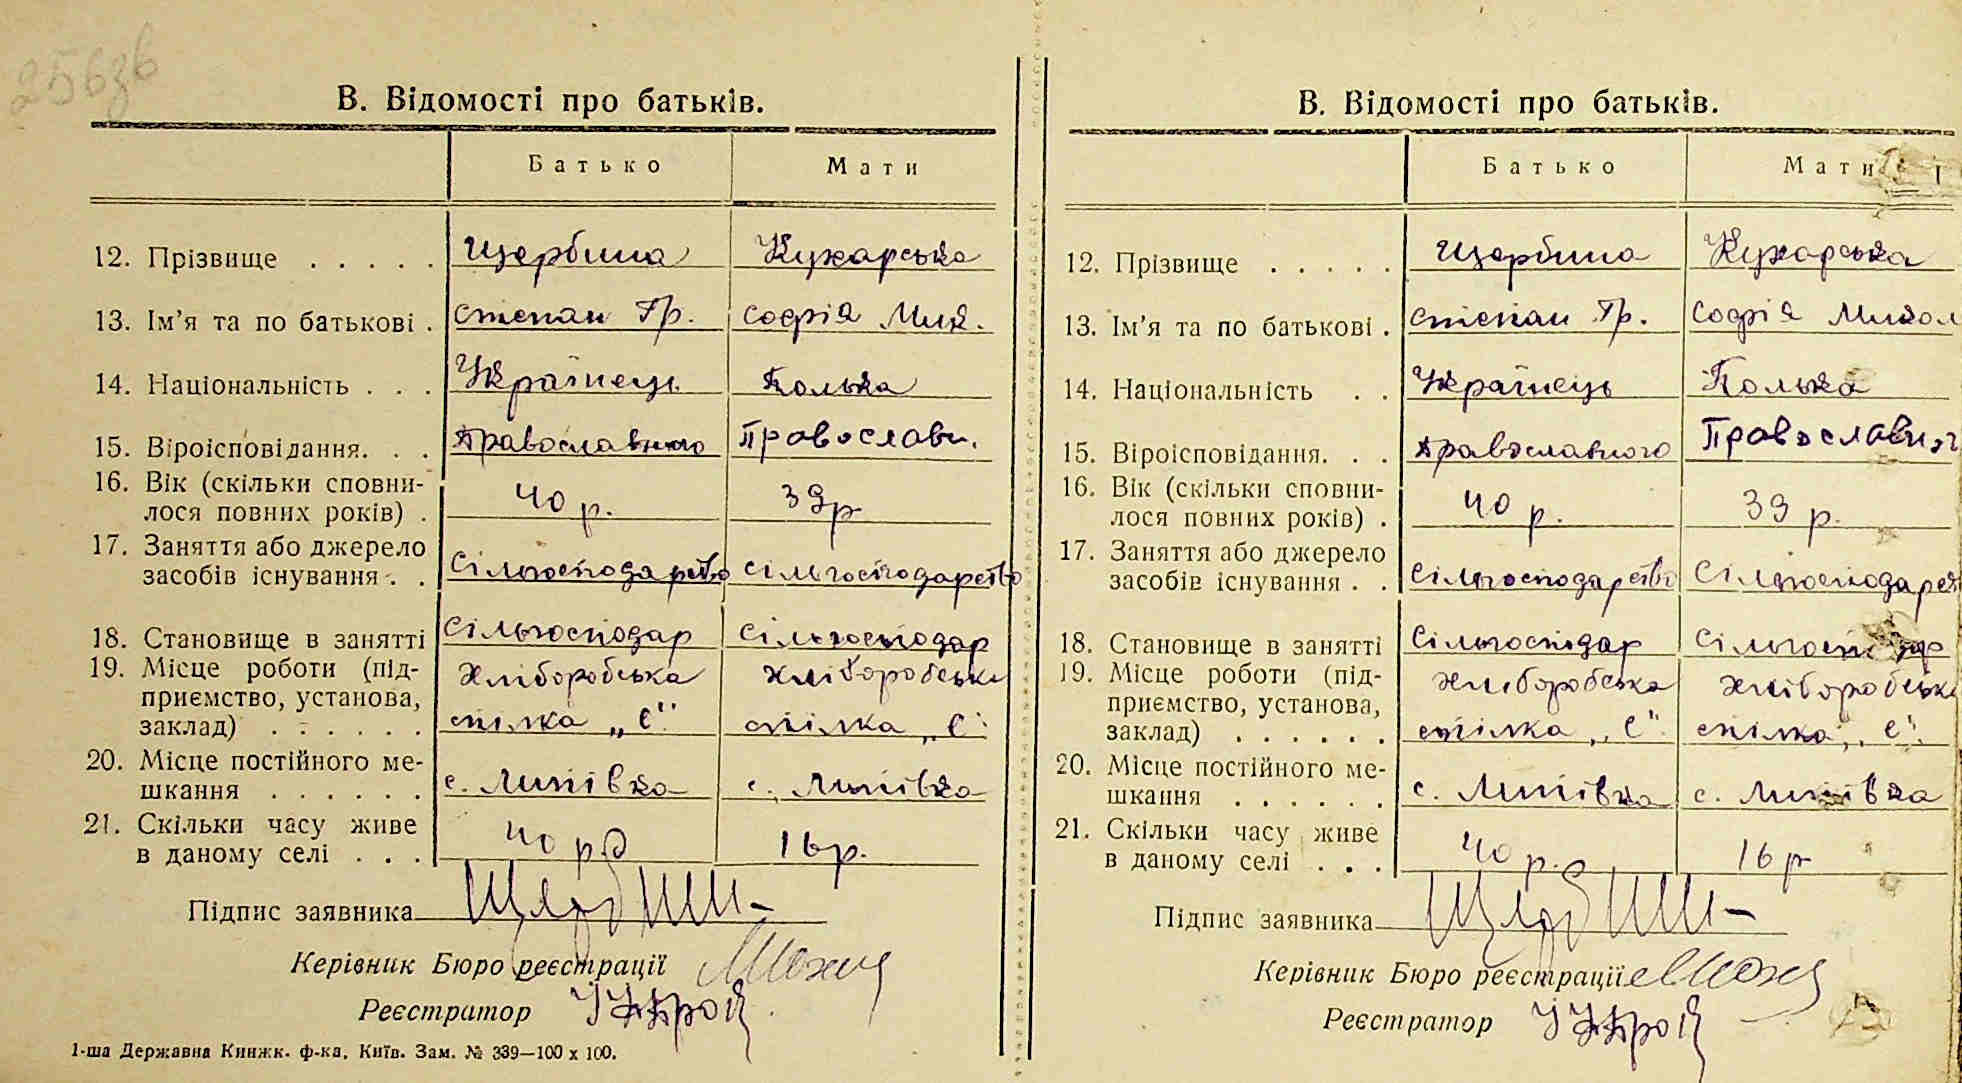 256зв
В. Відомості про батьків.
Батько Мати
12. Прізвище . . . . . Щербина Кухарська
13. Ім'я та по батькові . Степан Гр. Софія Мик.
14. Національність . . . Українець Полька
15. Віроісповідання. . . Православного Православн.
16. Вік (скільки сповни-
лося повних років) . 40 р. 39 р
17. Заняття або джерело
засобів існування . . Сільгосподарство сільгосподарство
18. Становище в занятті Сільгосподар Сільгосподар
19. Місце роботи (під- Хліборобська Хліборобська
приємство, установа,
заклад) . . . . . . спілка „Є" спілка „Є"
20. Місце постійного ме-
шкання . . . . . . с. Липівка с. Липівка
21. Скільки часу живе
в даному селі . . . 40 р 16 р.
Підпис заявника
Керівник Бюро реєстрації
Реєстратор
1-ша Державна Книжк. ф-ка, Київ. Зам. № 339—100 x 100.
В. Відомості про батьків.
Батько Мати
12. Прізвище . . . . . Щербина Кухарська
13. Ім'я та по батькові . Степан Гр. Софія Микол
14. Національність . . Українець Полька
15. Віроісповідання. . . Православного Православног
16. Вік (скільки сповни-
лося повних років) . 40 р. 39 р.
17. Заняття або джерело
засобів існування . . Сільгосподарство Сільгосподарств
18. Становище в занятті Сільгосподар Сільгосподар
19. Місце роботи (під- Хліборобська Хліборобська
приємство, установа,
заклад) . . . . . . спілка „Є" спілка „Є"
20. Місце постійного ме-
шкання . . . . . . с. Липівка с. Липівка
21. Скільки часу живе
в даному селі . . . 40 р. 16 р
Підпис заявника
Керівник Бюро реєстрації
Реєстратор